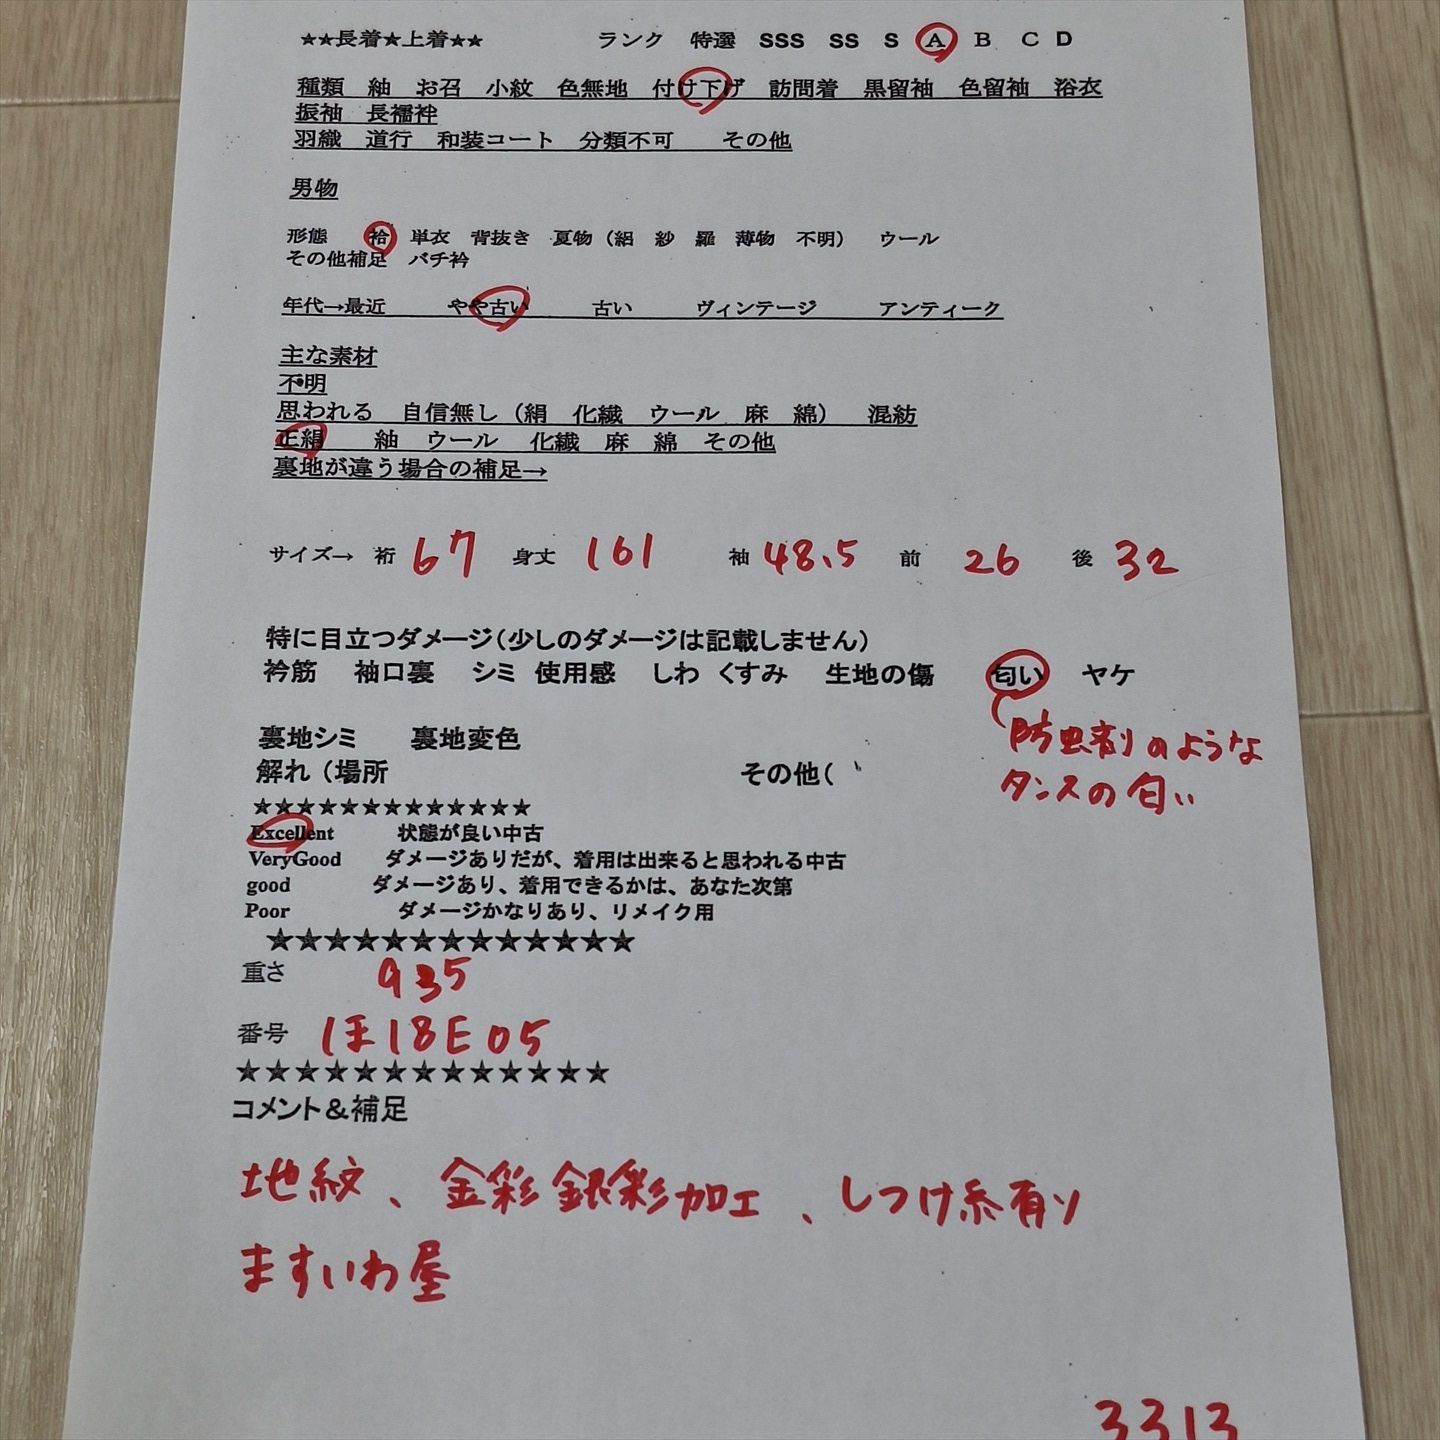 ★★長着★上着★★　ランク　特選　SSS　SS　S　A　B　C　D
種類　紬　お召　小紋　色無地　付け下げ　訪問着　黒留袖　色留袖　浴衣
振袖　長襦袢
羽織　道行　和装コート　分類不可　その他
男物
形態　袷　単衣　背抜き　夏物（絽　紗　羅　薄物　不明）　ウール
その他補足　バチ衿
年代→最近　やや古い　古い　ヴィンテージ　アンティーク
主な素材
不明
思われる　自信無し（絹　化繊　ウール　麻　綿）　混紡
正絹　紬　ウール　化繊　麻　綿　その他
裏地が違う場合の補足→
サイズ→　裄 67　身丈 161　袖 48.5　前 26　後 32
特に目立つダメージ（少しのダメージは記載しません）
衿筋　袖口裏　シミ　使用感　しわ　くすみ　生地の傷　匂い　ヤケ
防虫剤のような
タンスの匂い
裏地シミ　裏地変色
解れ（場所　その他（
★★★★★★★★★★★★★
Excellent　状態が良い中古
VeryGood　ダメージありだが、着用は出来ると思われる中古
good　ダメージあり、着用できるかは、あなた次第
Poor　ダメージかなりあり、リメイク用
★★★★★★★★★★★★★
重さ　935
番号　ほ18E05
★★★★★★★★★★★★★
コメント＆補足
地紋、金彩銀彩加工、しつけ糸有り
ますいわ屋
3313